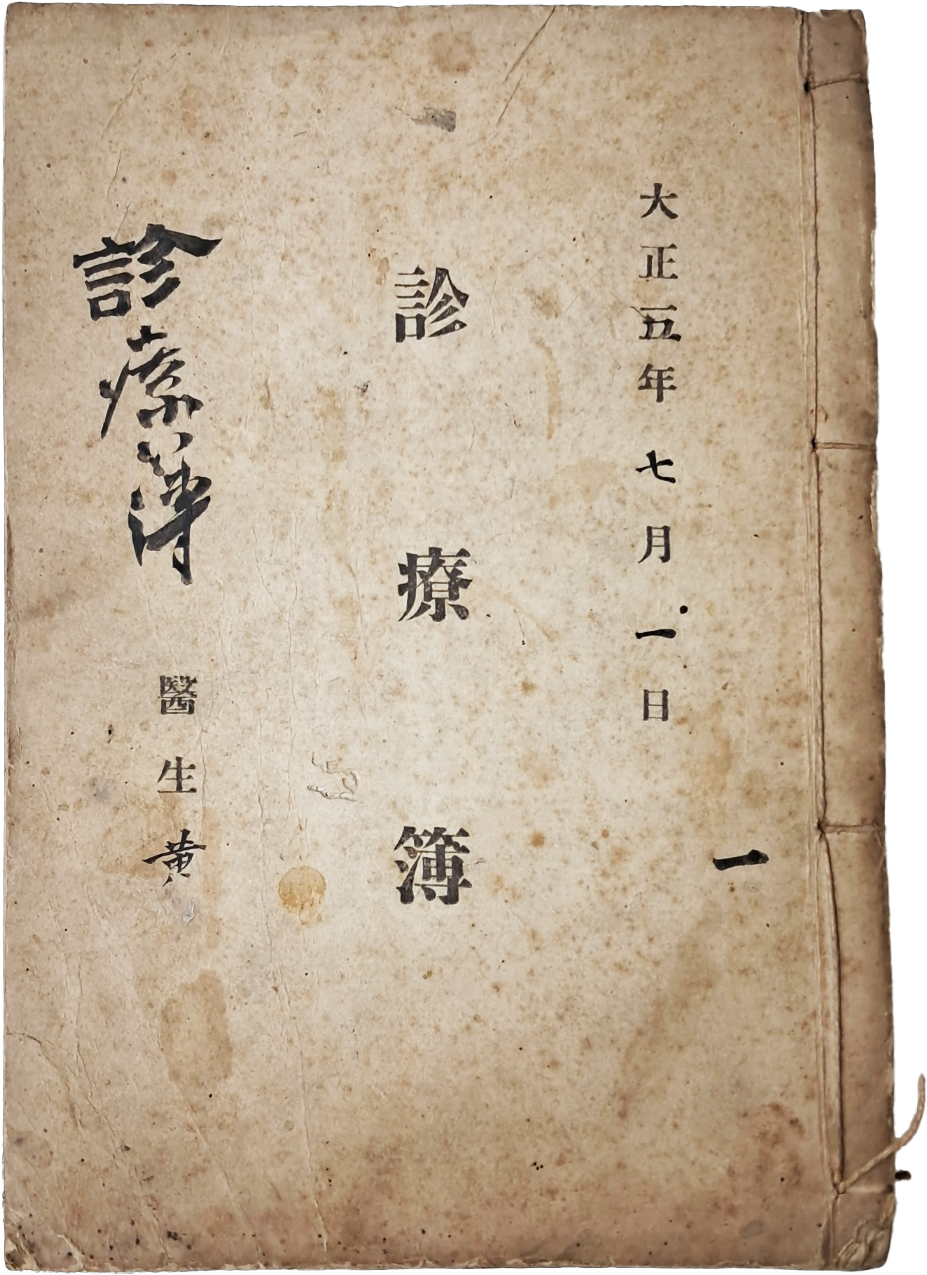 一
大正五年七月一日
診療簿
診療簿
醫生黄